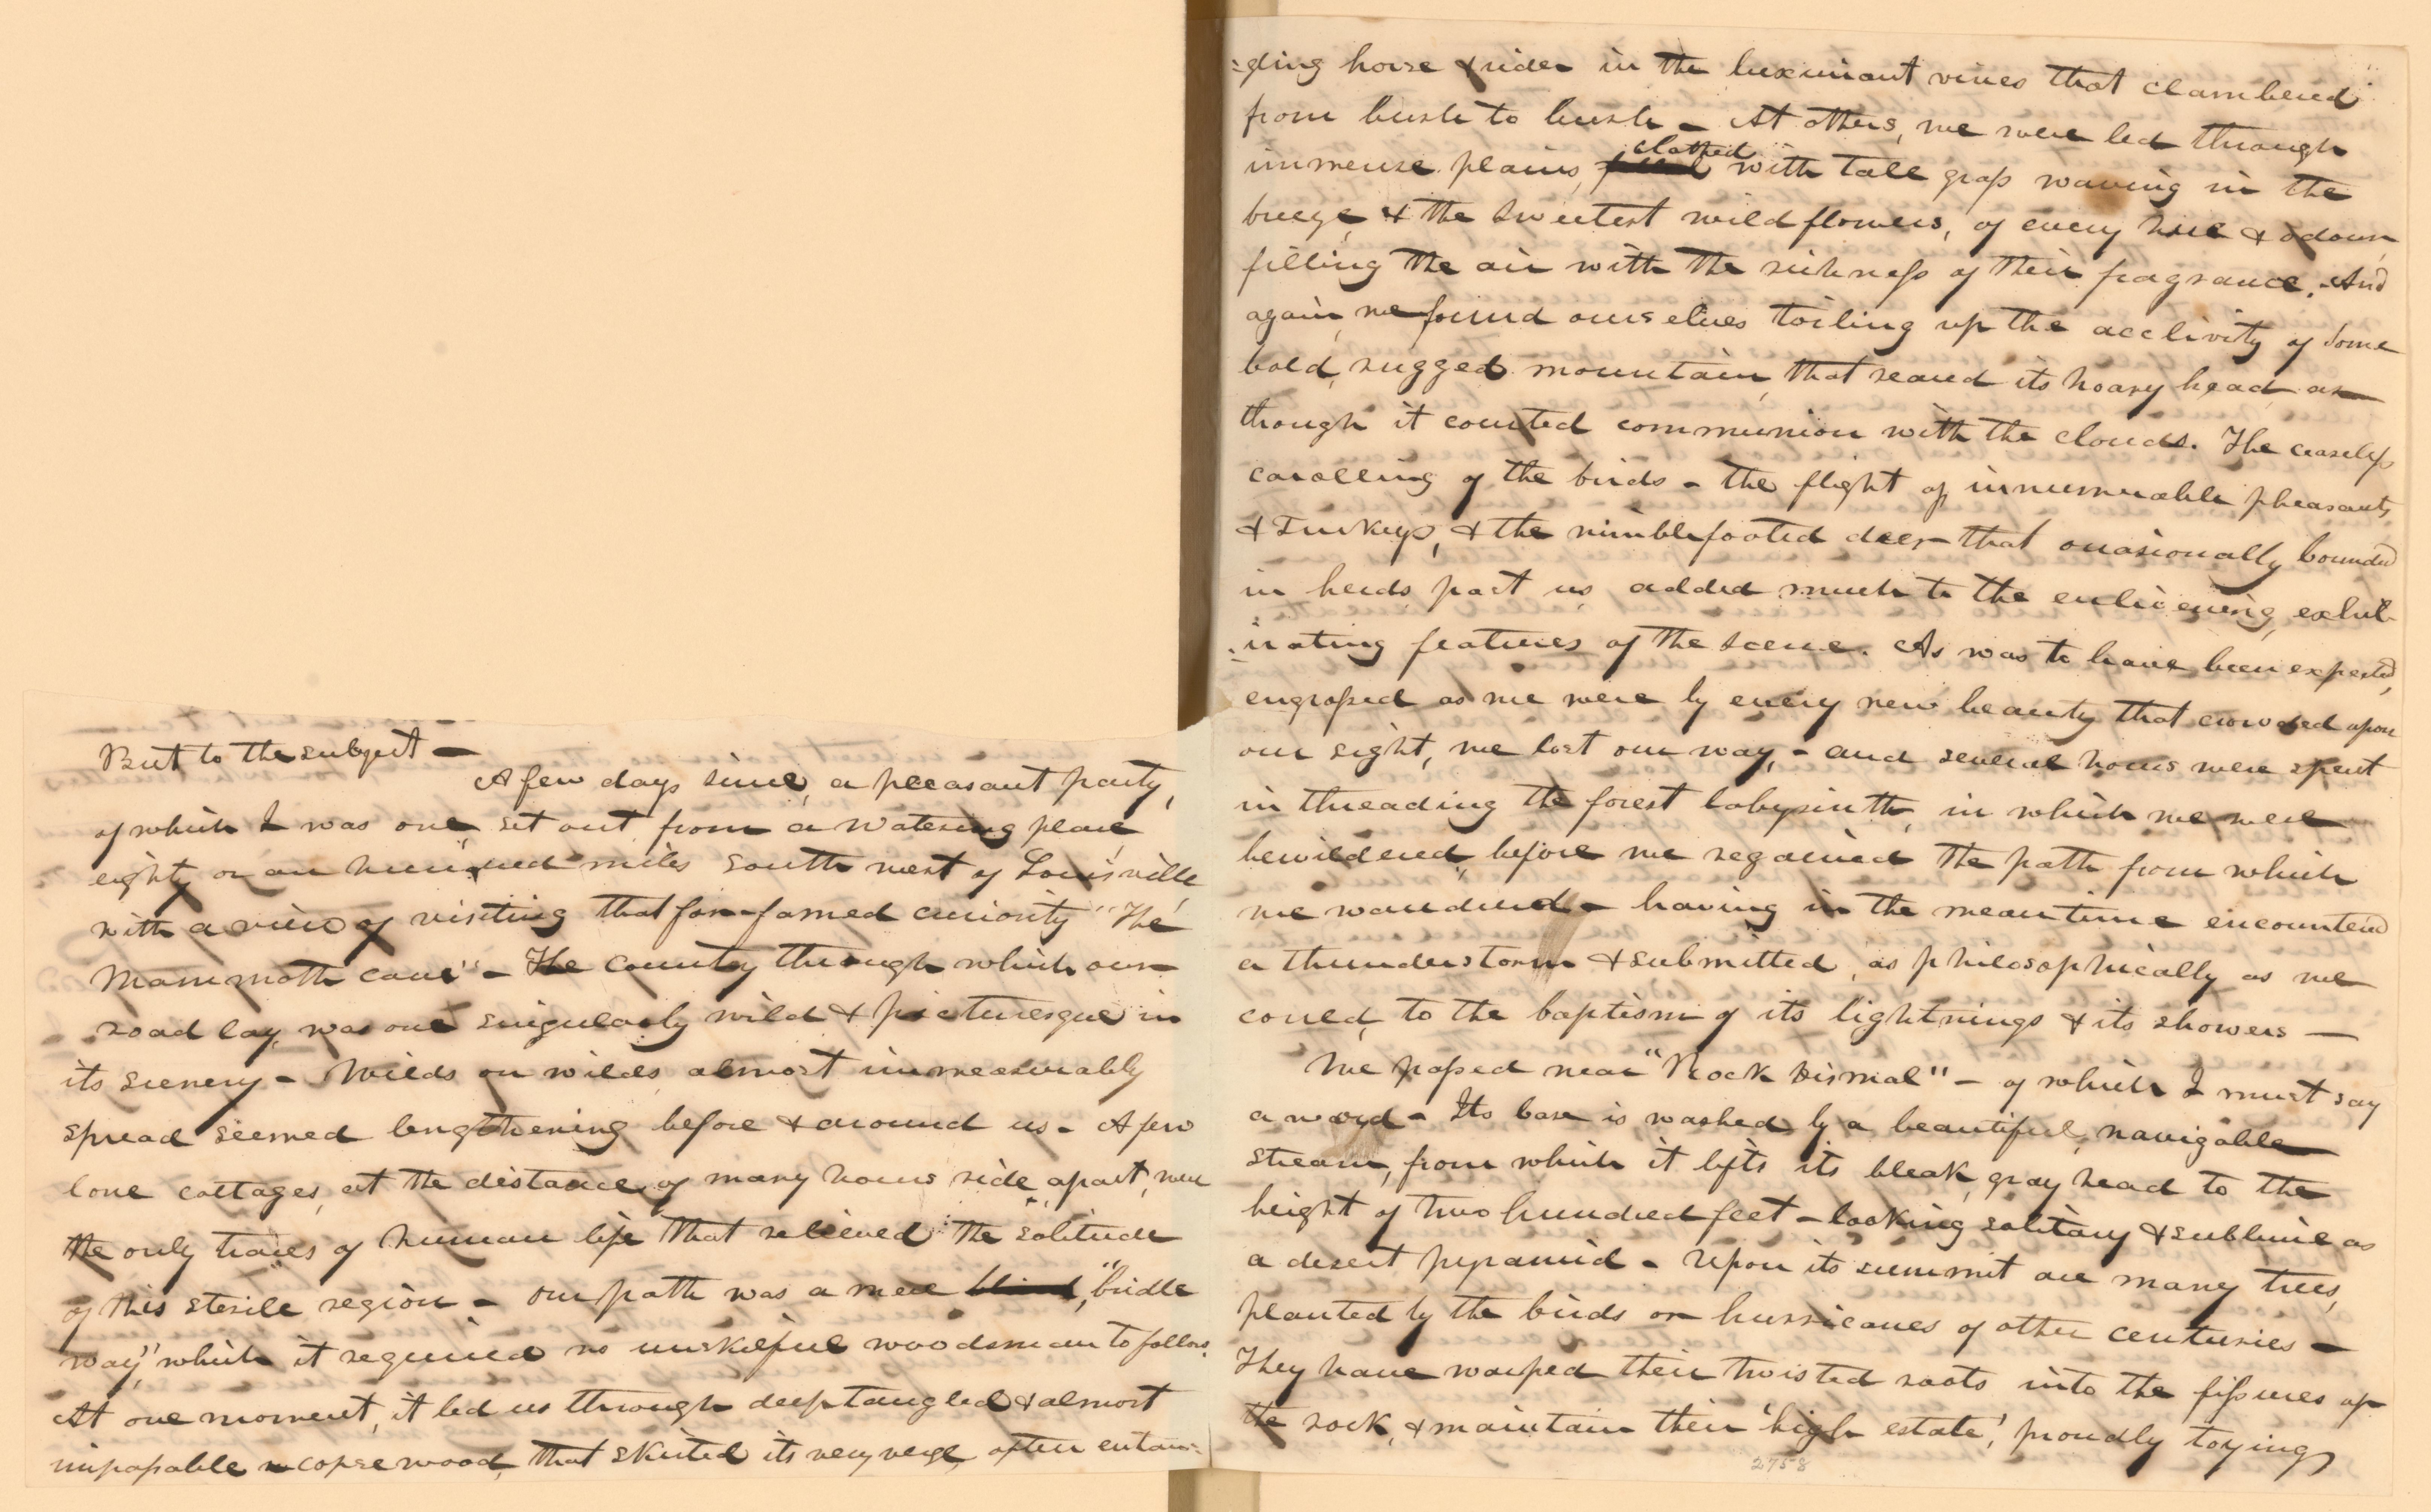 But to the subject —
A few days since, a pleasant party,
of which I was one, set out from a watering place,
eighty or an hundred miles south west of Louisville
with a view of visiting that far-famed curiosity "The
Mammoth cave" - The country through which our
road lay, was one singularly wild & picturesque in
its scenery - Wilds on wilds, almost immeasurably
spread seemed lengthening before & around us - A few
lone cottages, at the distance, of many hours ride, apart, were
the only traces of human life that relieved the solitude
of this sterile region - Our path was a mere blind, "bridle
way", which it required no unskilful woodsman to follow.
At one moment, it led us through deep tangled & almost
impassable copse wood, that skirted its very verge, often entan-
-gling horse & rider in the luxuriant vines that clambered
from bush to bush - At others, we were led through
clothed
immense plains, with tall grass waving in the
breeze, & the sweetest wild flowers, of every hue & odour,
filling the air with the richness of their fragrance. And
again, we found ourselves toiling up the acclivity of some
bald, rugged mountain, that reared its hoary head, as
though it courted communion with the clouds. The ceaseless
carolling of the birds - the flight of innumerable pheasants,
& turkeys, & the nimblefooted deer that occasionally bounded
in herds, past us, added much to the enlivening, exhil-
-irating features of the scene. As was to have been expected,
engrossed as we were by every new beauty that crowded upon
our sight, we lost our way, - and several hours were spent
in threading the forest labyrinth, in which we were
bewildered, before we regained the path from which
we wandered - having in the meantime encountered
a thunderstorm & submitted, as philosophically as we
could, to the baptism of its lightnings & its showers —
We passed near "Rock Dismal" - of which I must say
a word - Its base is washed by a beautiful, navigable
stream, from which it lifts its bleak, gray head to the
height of two hundred feet - looking solitary & sublime as
a desert pyramid - Upon its summit are many trees,
planted by the birds or hurricanes of other centuries -
They have warped their twisted roots into the fissures of
the rock, & maintain their 'high estate', proudly toying
2758